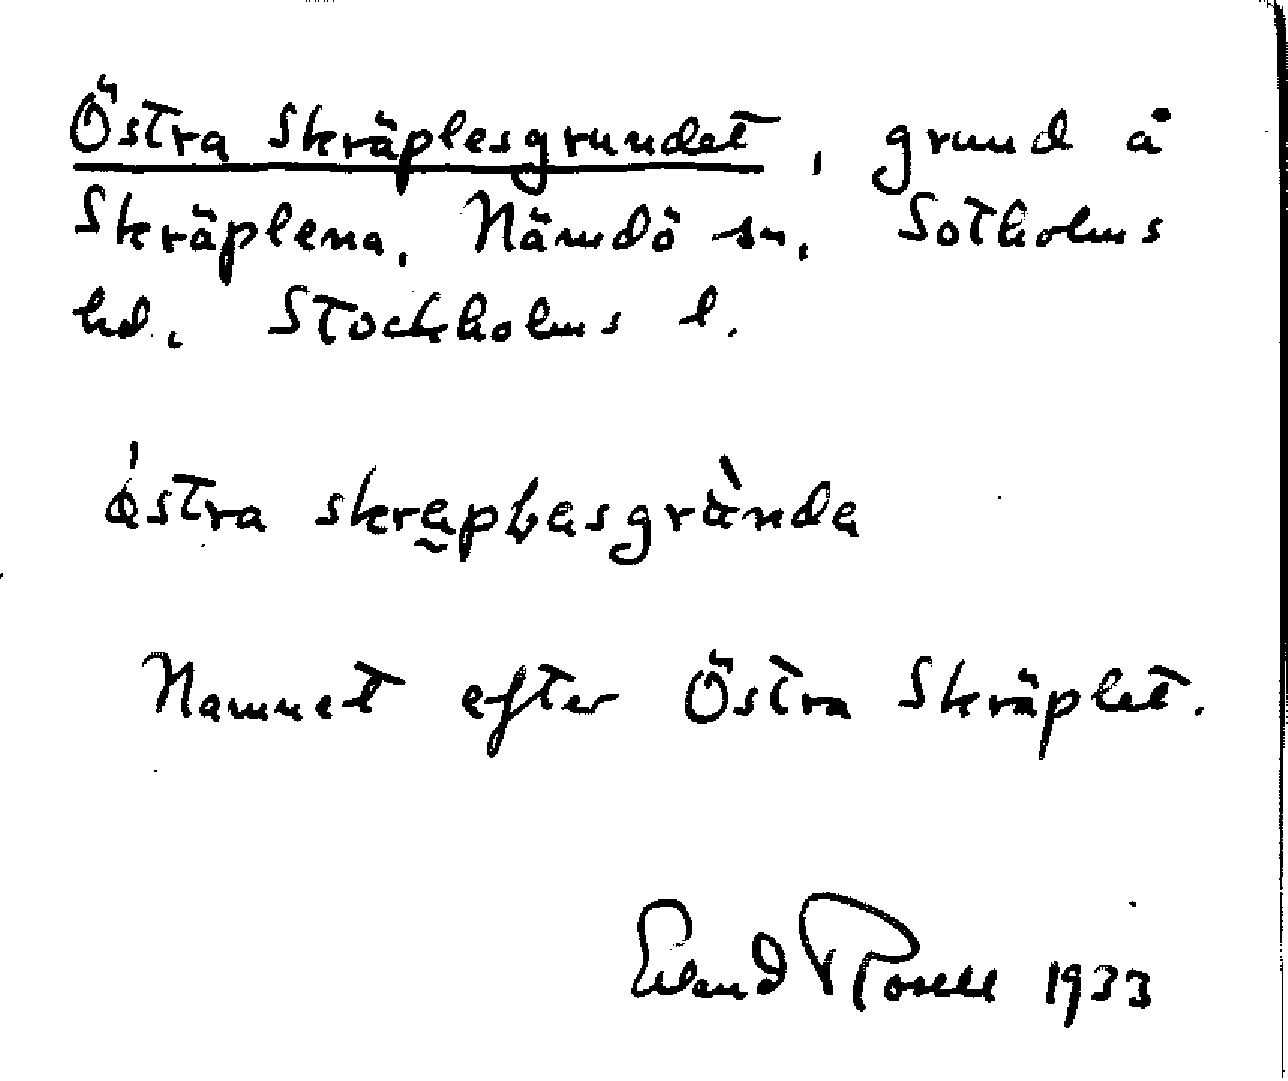 Östra Skräplesgrundet, grund å
Skräplena, Nämdö sn, Sotholms
hd, Stockholms l.
Namnet efter Östra Skräplet.
Erland Rosell 1933